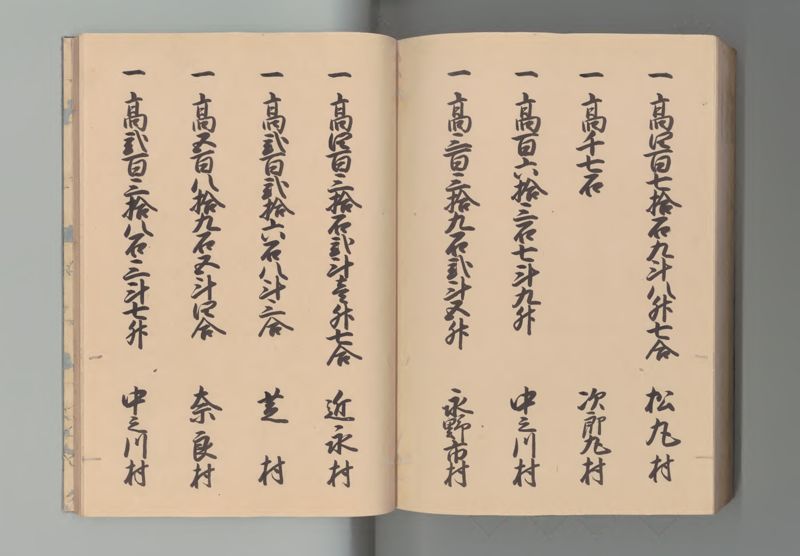 一 高四百七拾石九斗八升七合 松丸村
一 高千七石 次郎丸村
一 高百六拾三石七斗九升 中之川村
一 高三百三拾九石弐斗五升 永野市村
一 高四百三拾石弐斗壱升七合 近永村
一 高弐百弐拾六石八斗三合 芝村
一 高五百八拾九石五斗四合 奈良村
一 高弐百三拾八石三斗七升 中之川村